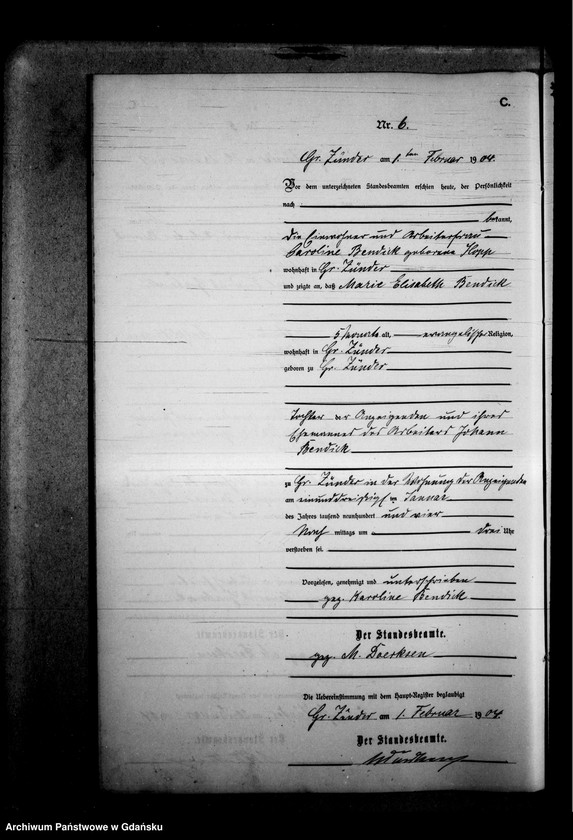 C.
Nr. 6.
Gr. Zünder am 1ten Februar 1904.
Vor dem unterzeichneten Standesbeamten erschien heute, der Persönlichkeit
nach
bekannt,
die Einwohner und Arbeiterfrau
Caroline Bendick geborene Hopp
wohnhaft in Gr. Zünder
und zeigte an, daß Marie Elisabeth Bendick
5 Monate alt, evangelischer Religion,
wohnhaft in Gr. Zünder
geboren zu Gr. Zünder
Tochter der Anzeigenden und ihres
Ehemannes des Arbeiters Johann
Bendick
zu Gr. Zünder in der Wohnung der Anzeigenden
am einunddreißigsten Januar
des Jahres tausend neunhundert und vier
Nach mittags um drei Uhr
verstorben sei.
Vorgelesen, genehmigt und unterschrieben
gez. Karoline Bendick
Der Standesbeamte.
gez. M. Doerksen
Die Uebereinstimmung mit dem Haupt-Register beglaubigt
Gr. Zünder am 1. Februar 1904.
Der Standesbeamte.
Archiwum Państwowe w Gdańsku